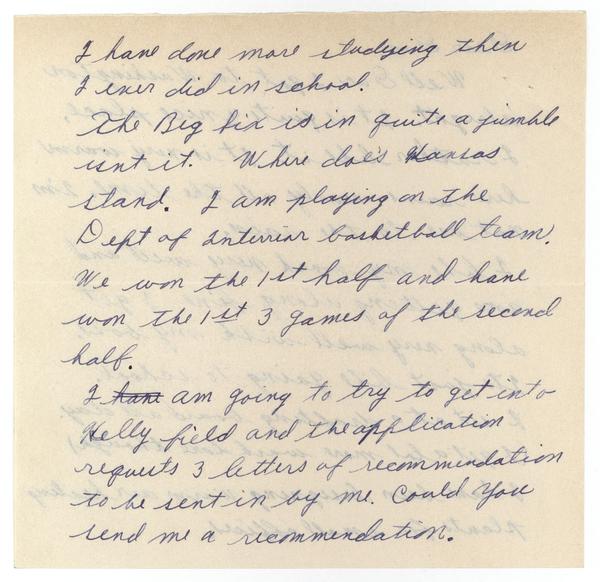 I have done more studying then
I ever did in school.
The Big Six is in quite a jumble
isnt it. Where does Kansas
stand. I am playing on the
Dept of Interrior basketball team.
We won the 1st half and have
won the 1st 3 games of the second
half.
I have am going to try to get into
Kelly field and the application
requests 3 letters of recommendation
to be sent in by me. Could You
send me a recommendation.